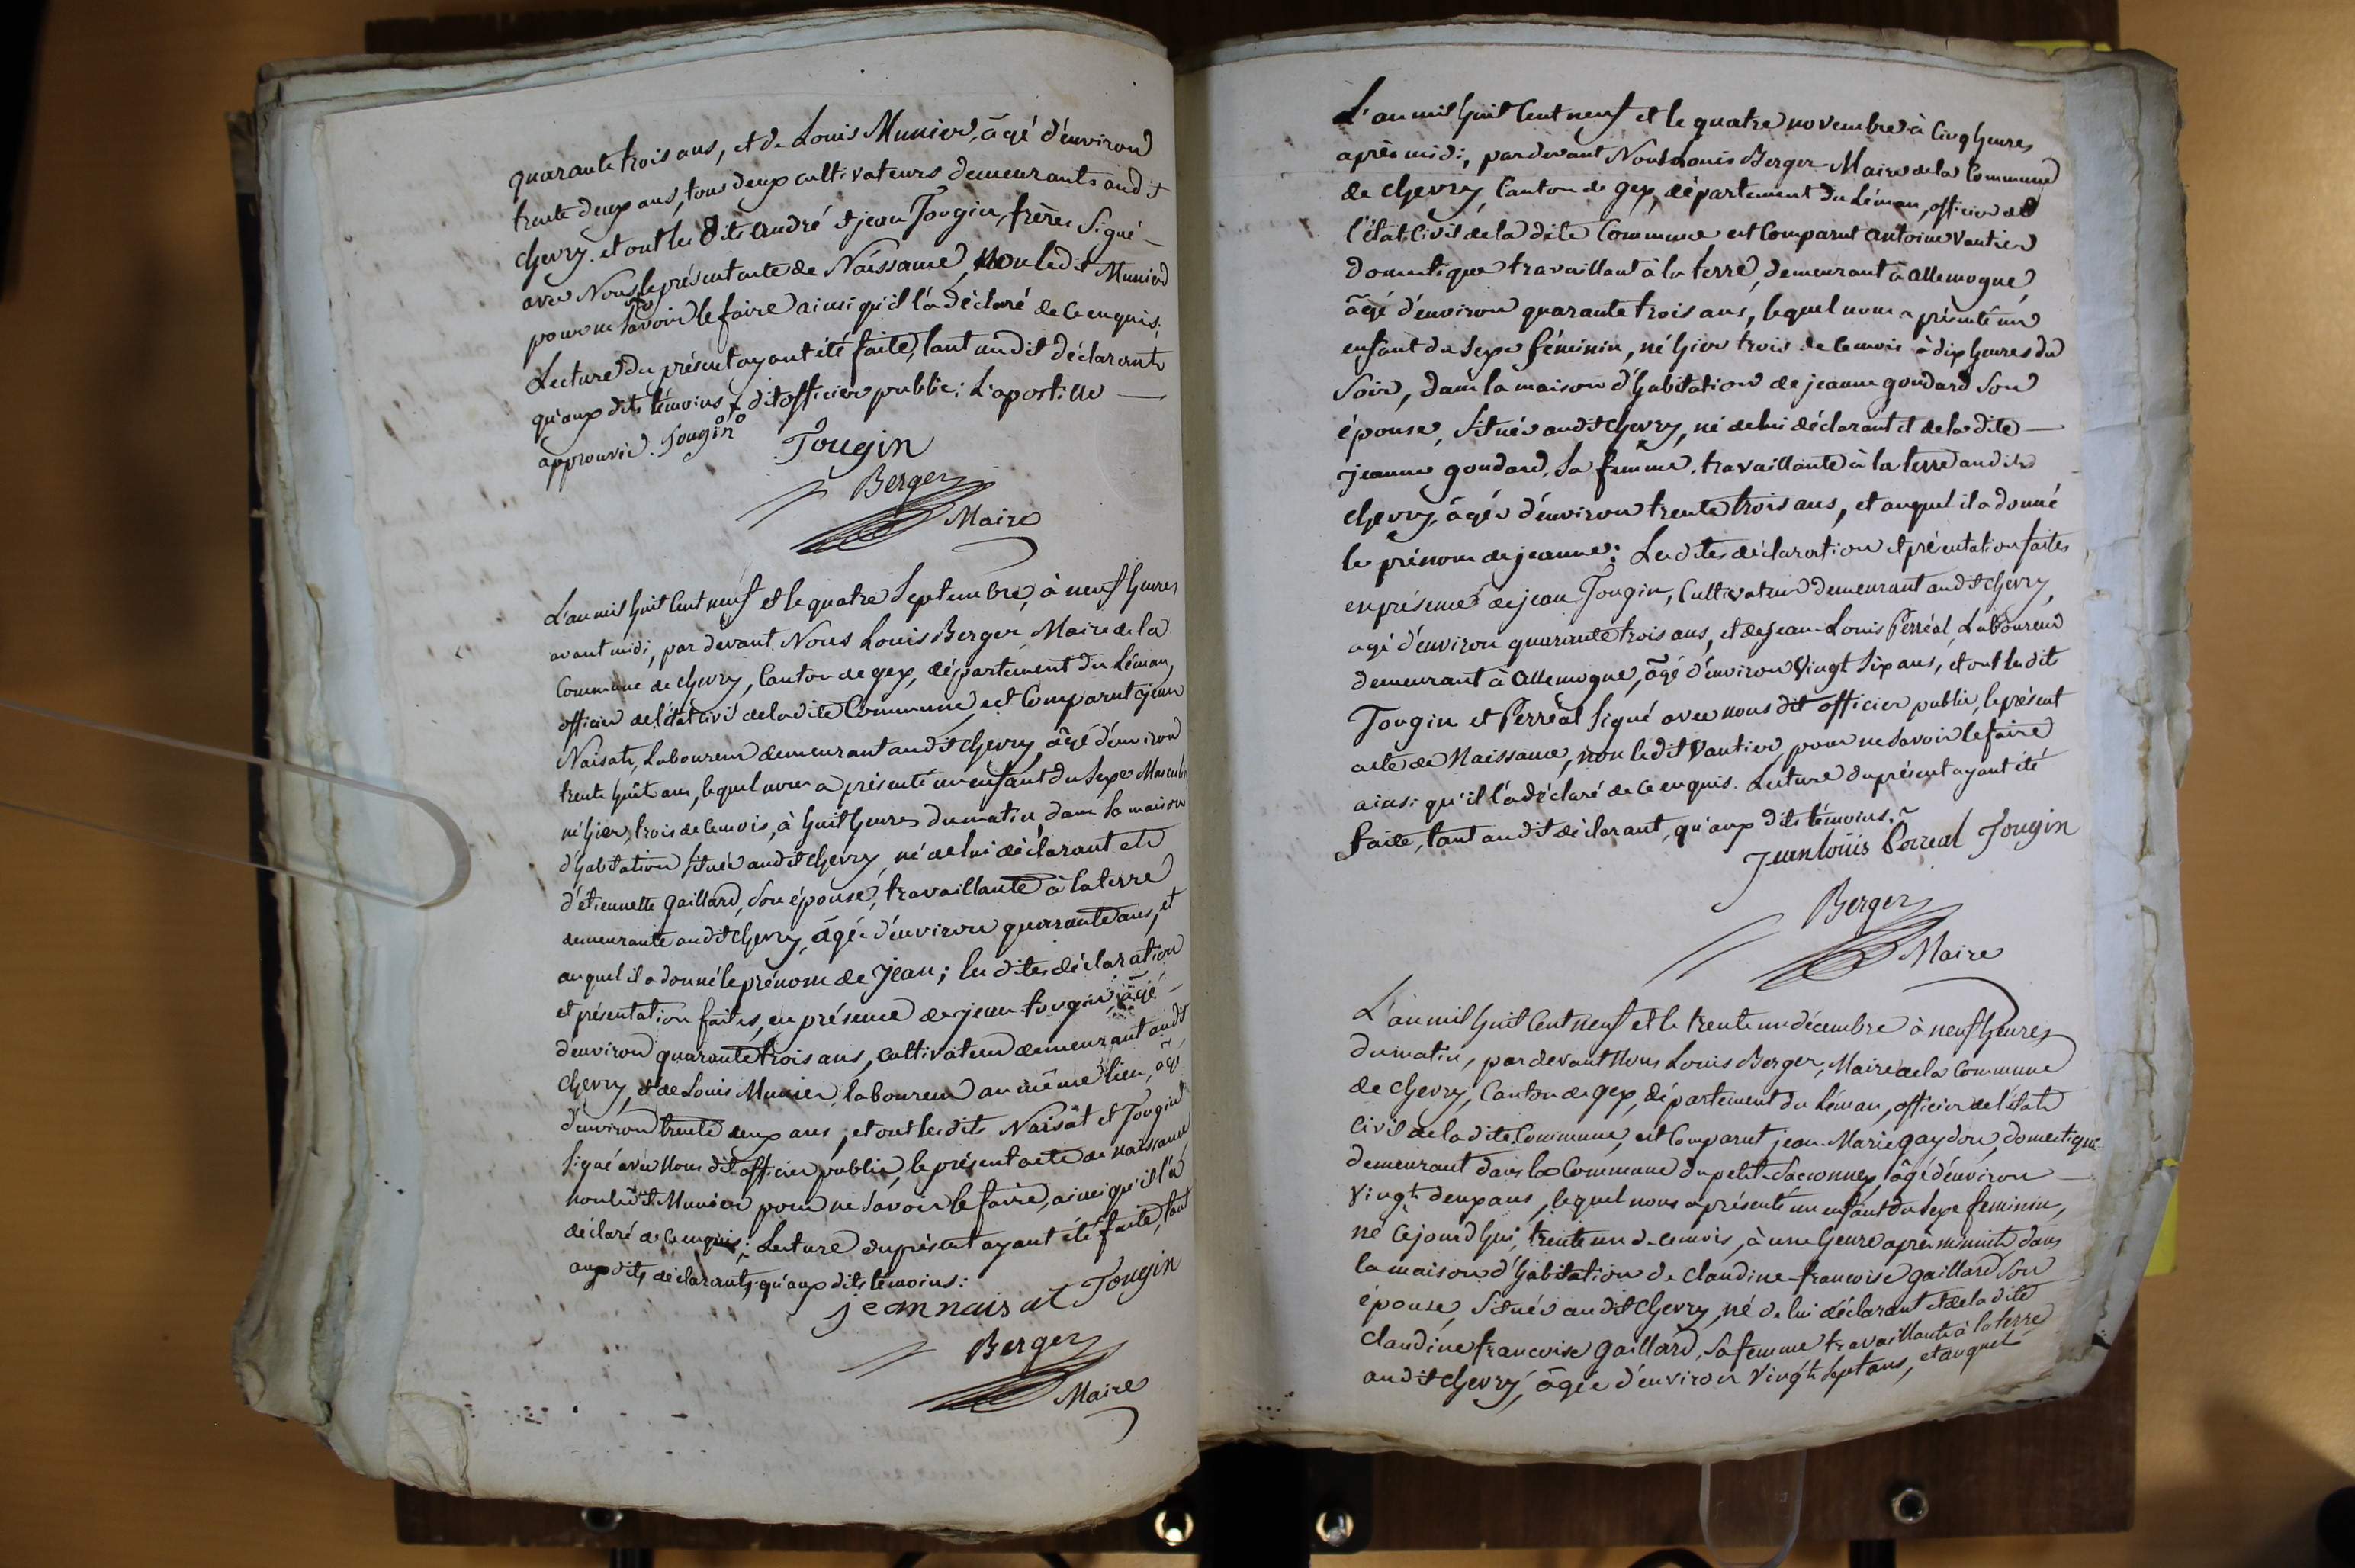 quarante trois ans, et de Louis Munier, âgé d'environ
trente deux ans, tous deux cultivateurs demeurants audit
chevry. et ont les dits André et jean Tougin, frères signé
avec Nous le présent acte de Naissance, non ledit Munier
pour ne savoir le faire ainsi qu'il l'a déclaré de ce enquis;
Lecture du présent ayant été faite, tant audit déclarant
qu'aux dits témoins & dit officier public; L'apostille
approuvée. Tougin
Tougin
Berger
Maire
L'an mil huit cent neuf et le quatre septembre, à neuf heures
avant midi, par devant Nous Louis Berger Maire de la
Commune de chevry, Canton de gex, département du Léman,
officier de l'état civil de la dite Commune est Comparut jean
Naisat, Laboureur demeurant audit chevry, âgé d'environ
trente huit ans, lequel nous a présenté un enfant du sexe Masculin
né hier, trois de ce mois, à huit heures du matin dans sa maison
d'habitation située audit chevry, né de lui déclarant et de
d'étiennette gaillard, son épouse, travaillante à la terre
demeurante audit chevry, âgée d'environ quarante ans, et
auquel il a donné le prénom de Jean; les dites déclaration
et présentation faites, en présence de jean tougin, âgé
d'environ quarante trois ans, cultivateur demeurant audit
chevry, et de Louis Munier, laboureur au même lieu, âgé
d'environ trente deux ans, et ont les dits Naisat et Tougin
signé avec Nous dit officier public, le présent acte de naissance
non ledit Munier pour ne savoir le faire, ainsi qu'il l'a
déclaré de ce enquis; Lecture du présent ayant été faite, tant
aux dits déclarants, qu'aux dits témoins:
jean naisat Tougin
Berger
Maire
L'an mil huit cent neuf et le quatre novembre à cinq heures
après midi, par devant Nous Louis Berger Maire de la Commune
de chevry, Canton de gex, département du Léman, officier de
l'état civil de la dite Commune est Comparut antoine Vautier
domestique travaillant à la terre, demeurant à allemogne,
âgé d'environ quarante trois ans, lequel nous a présenté un
enfant du sexe féminin, né hier trois de ce mois à dix heures du
soir, dans la maison d'habitation de jeanne goudard son
épouse, située audit chevry, né de lui déclarant et de la dite
jeanne goudard, sa femme, travaillante à la terre audit
chevry, âgée d'environ trente trois ans, et auquel il a donné
le prénom de jeanne; Les dites déclaration et présentation faites
en présence de jean Tougin, Cultivateur demeurant audit chevry,
agé d'environ quarante trois ans, et de jean-Louis Perréal, Laboureur
demeurant à allemogne, âgé d'environ vingt six ans, et ont les dits
Tougin et Perréal signé avec nous dit officier public, le présent
acte de Naissance, non ledit Vautier, pour ne savoir le faire
ainsi qu'il l'a déclaré de ce enquis. Lecture du présent ayant été
faite, tant audit déclarant, qu'aux dits témoins.
Jean loüis Perreal Tougin
Berger
Maire
L'an mil huit cent neuf et le trente un décembre à neuf heures
du matin, par devant Nous Louis Berger, Maire de la Commune
de chevry, Canton de gex, département du Léman, officier de l'état
civil de la dite Commune, est Comparut jean-Marie gaydon, domestique
demeurant dans la Commune du petit-Saconnex, âgé d'environ
vingt deux ans, lequel nous a présenté un enfant du sexe féminin,
né cejourd'hui, trente un de ce mois, à une heure après minuit dans
la maison d'habitation de claudine-francoise gaillard son
épouse, située audit chevry, né de lui déclarant et de la dite
claudine francoise gaillard, sa femme travaillante à la terre
audit chevry, âgée d'environ vingt sept ans, et auquel